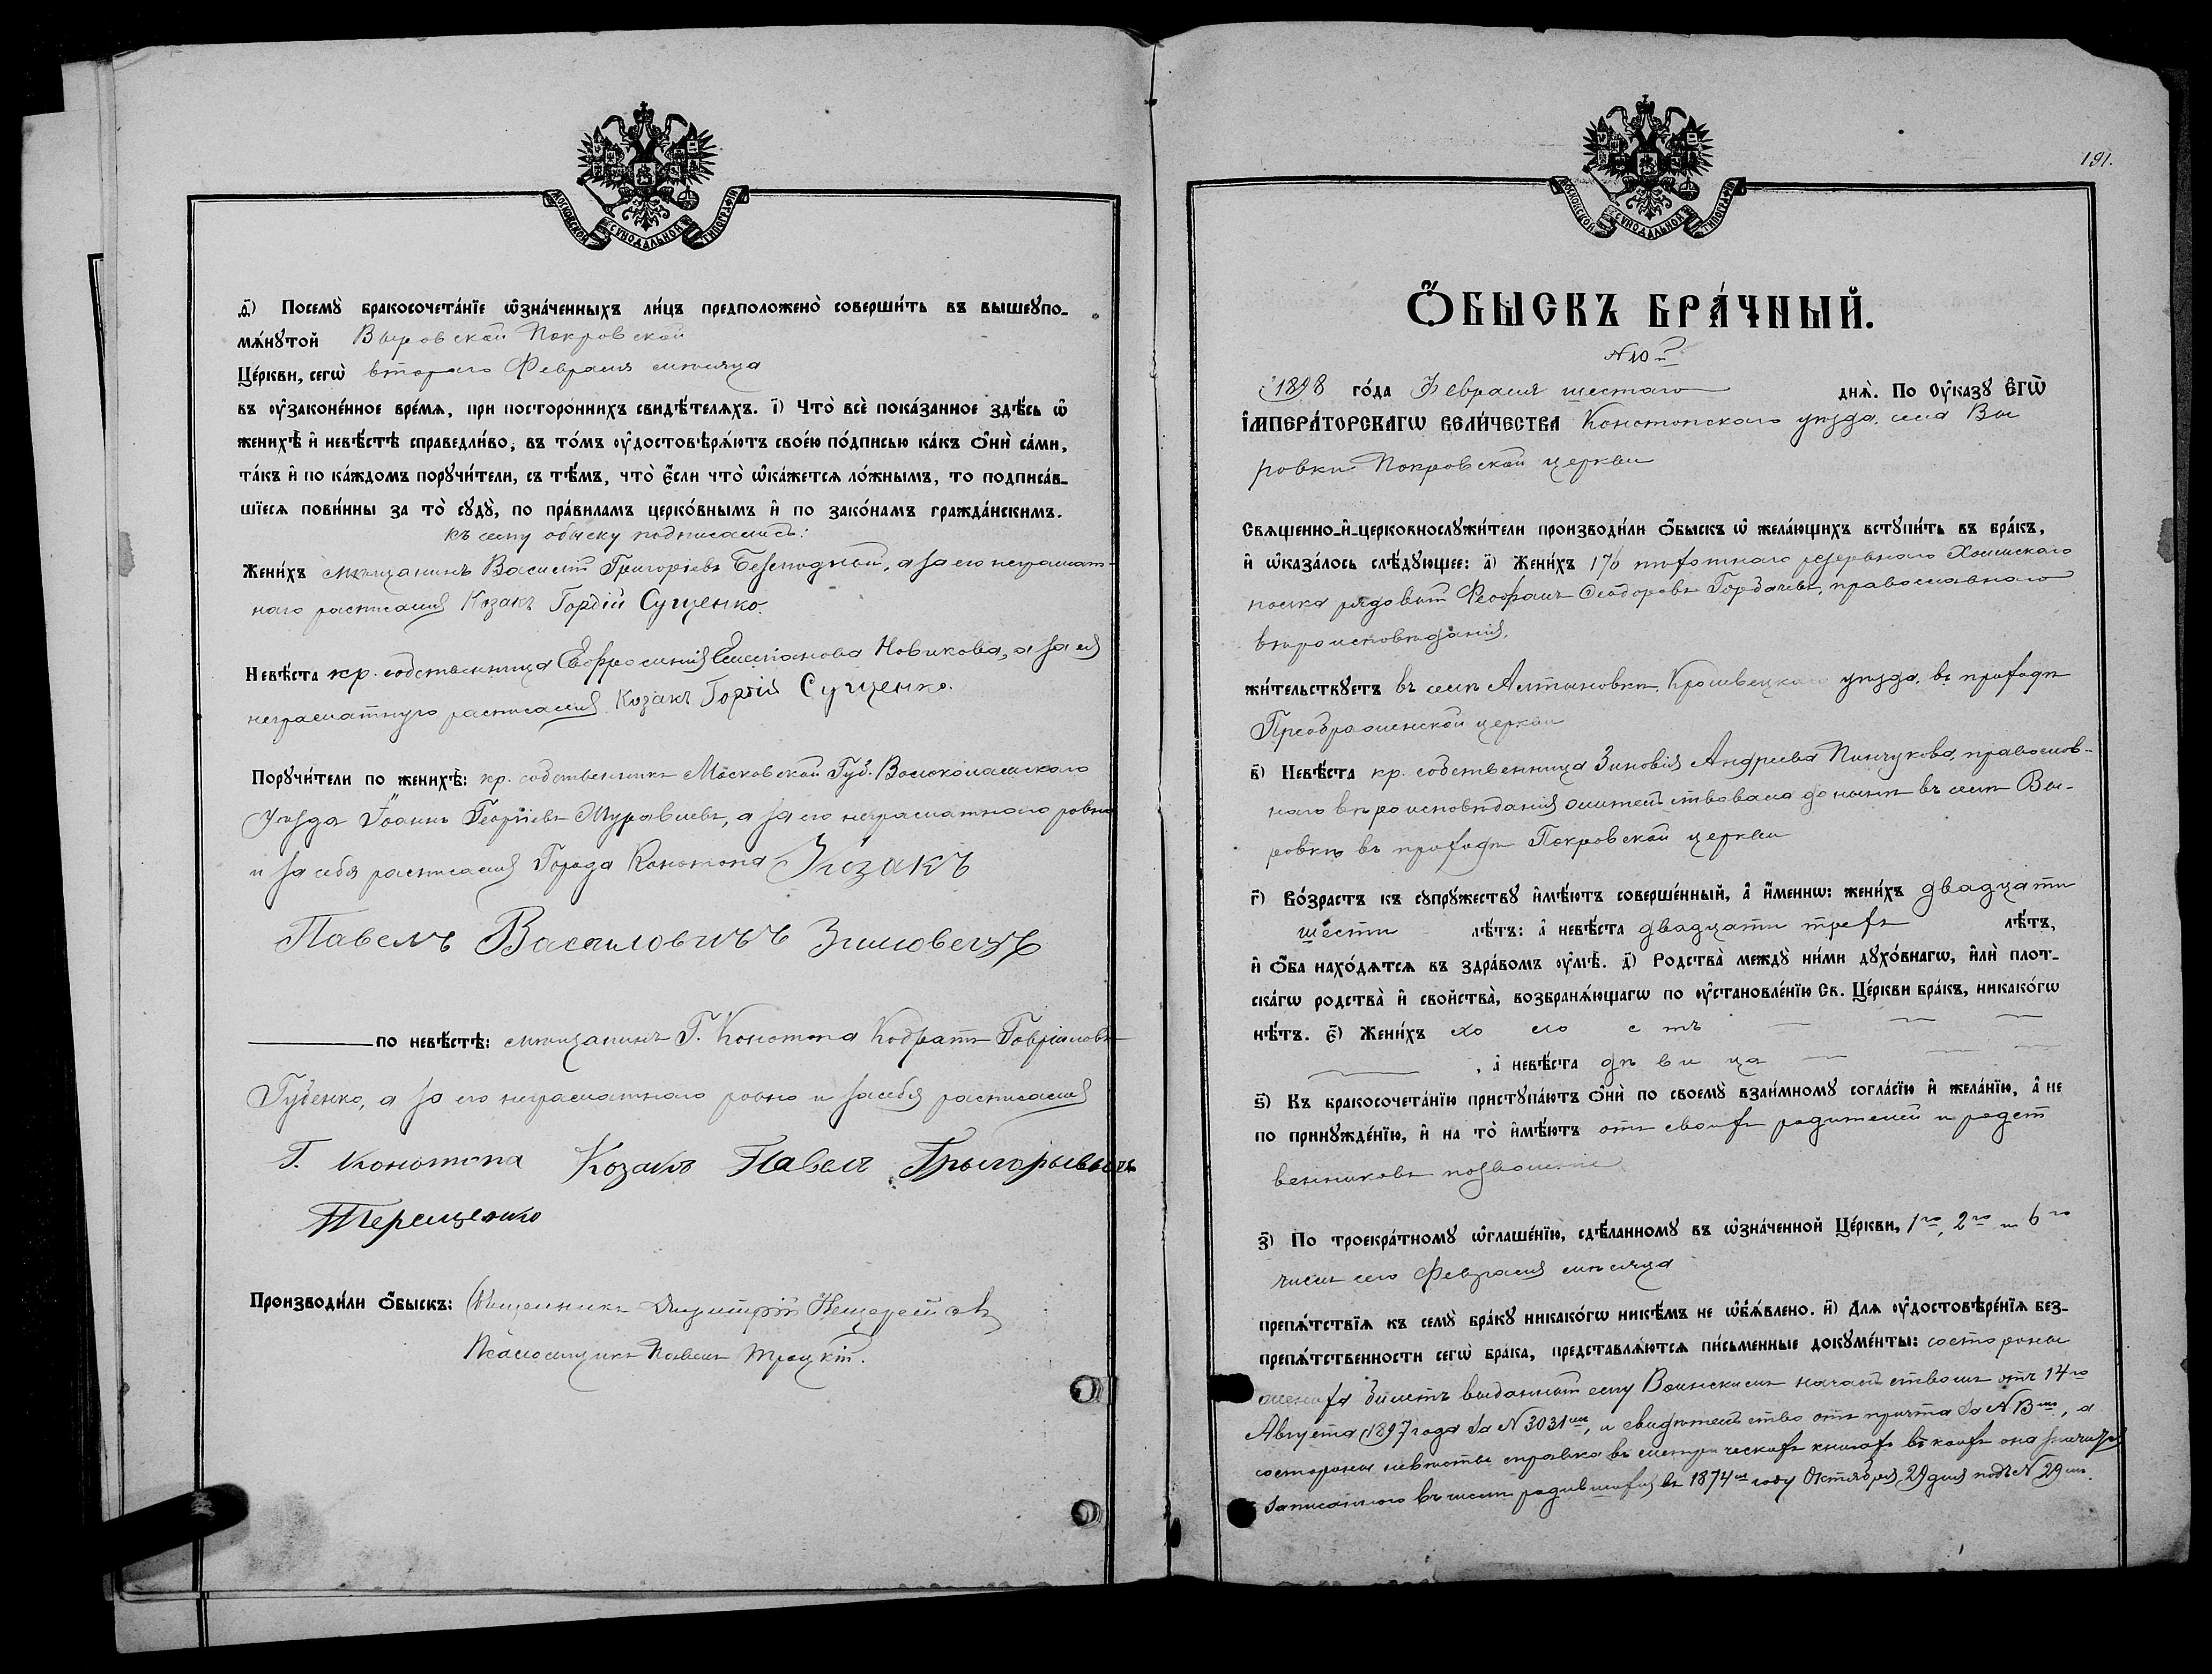 МОСКОВСКОЙ СУНОДАЛЬНОЙ ТИПОГРАФІИ
д҃) Посемꙋ̀ бракосочета́нїе ѡ҆зна́ченныхъ ли́цъ предположено̀ соверши́ть въ вышеꙋпо-
мѧ́нꙋтой Выровской Покровской
Це́ркви, сегѡ̀ втораго Февраля мѣсяца
въ ᲂу҆законе́нное вре́мѧ, при посторо́ннихъ свидѣ́телѧхъ. і҃) Что̀ всѐ пока́занное здѣ́сь ѡ҆
женихѣ̀ и҆ невѣ́стѣ справедли́во, въ то́мъ ᲂу҆достовѣрѧ́ютъ свое́ю по́дписью ка́къ ѻ҆нѝ са́ми,
та́къ и҆ по ка́ждомъ порꙋчи́тели, съ тѣ́мъ, что̀ є҆́сли что̀ ѡ҆ка́жетсѧ ло́жнымъ, то подписа́в-
шїесѧ пови́нны за то̀ сꙋдꙋ̀, по пра́виламъ церко́внымъ и҆ по зако́намъ гражда́нскимъ.
къ сему обыску подписались:
Жени́хъ мѣщанинъ Василій Григоріевъ Безмодный, а за его неграмат-
наго расписался Козакъ Гордій Сущенко.
Невѣ́ста кр. собственница Евфросинія Емеліанова Новикова, а за ея
неграматную расписался Козакъ Гордій Сущенко.
Порꙋчи́тели по женихѣ̀: кр. собственникъ Московской Губ. Волоколамскаго
Уѣзда Іоаннъ Георгіевъ Муравлевъ, а за его неграматнаго ровно
и за себя расписался Города Конотопа Козакъ
Павелъ Василовичъ Зимовецъ
по невѣ́стѣ: мѣщанинъ Г. Конотопа Кодратъ Гавріиловъ
Губенко, а за его неграматнаго ровно и засебя расписался
Г. Конотопа Козакъ Павелъ Грыгорьевычъ
Терещенко
Производи́ли ѻ҆́быскъ: Священникъ Димитрій
Псаломщикъ Павелъ Троцкій.
191.
МОСКОВСКОЙ СУНОДАЛЬНОЙ ТИПОГРАФІИ
Ѻ҆́БЫСКЪ БРА́ЧНЫЙ.
№ 10й
1898 го́да Февраля шестаго днѧ̀. По Оу҆ка́зꙋ Є҆ГѠ̀
І҆МПЕРА́ТОРСКАГѠ ВЕЛИ́ЧЕСТВА Конотопскаго уѣзда, села Вы
ровки Покровской церкви
Свѧщенно-и҆-церковнослꙋжи́тели производи́ли ѻ҆́быскъ ѡ҆ жела́ющихъ встꙋпи́ть въ бра́къ,
и҆ ѡ҆каза́лось слѣ́дꙋющее: а҃) Жени́хъ 176 пѣхотнаго резервнаго Холмскаго
полка рядовой Феофанъ Ѳеодоровъ Гордачевъ, православнаго
вѣроисповѣданія,
жи́тельствꙋетъ въ селѣ Алтыновкѣ, Кролевецкаго уѣзда, въ приходѣ
Преображенской церкви
в҃) Невѣ́ста кр. собственница Зиновія Андреева Пинчукова, православ-
наго вѣроисповѣданія жительствовала до нынѣ въ селѣ Вы-
ровкѣ въ приходѣ Покровской церкви
г҃) Во́зрастъ къ сꙋпрꙋ́жествꙋ и҆мѣ́ютъ соверше́нный, а҆ и҆́меннѡ: жени́хъ двадцати
шести лѣ́тъ: а҆ невѣ́ста двадцати трехъ лѣ́тъ,
и҆ ѻ҆́ба нахо́дѧтсѧ въ здра́вомъ ᲂу҆мѣ̀. д҃) Родства̀ междꙋ̀ ни́ми дꙋхо́внагѡ, и҆лѝ плот-
ска́гѡ родства̀ и҆ свойства̀, возбранѧ́ющагѡ по ᲂу҆становле́нїю Св. Це́ркви бра́къ, никако́гѡ
нѣ́тъ. є҃) Жени́хъ хо ло с тъ
, а҆ невѣ́ста дѣ ви ца
ѕ҃) Къ бракосочета́нїю пристꙋпа́ютъ ѻ҆нѝ по своемꙋ̀ взаи́мномꙋ согла́сїю и҆ жела́нїю, а҆ не
по принꙋжде́нїю, и҆ на то̀ и҆мѣ́ютъ отъ своихъ родителей и родст
венниковъ позволеніе
з҃) По троекра́тномꙋ ѡ҆глаше́нїю, сдѣ́ланномꙋ въ ѡ҆зна́ченной Це́ркви, 1го, 2го и 6го
числъ сего Февраля мѣсяца
препѧ́тствїѧ къ семꙋ̀ бра́кꙋ никако́гѡ никѣ́мъ не ѡ҆б̾ѧ́влено. и҃) Длѧ ᲂу҆достовѣре́нїѧ без-
препѧ́тственности сегѡ̀ бра́ка, представлѧ́ютсѧ пи́сьменные докꙋме́нты: состороны
жениха билетъ выданный ему Воинскимъ начальствомъ отъ 14го
Августа 1897 года за №3031мъ, и свидѣтельство отъ причта за №13мъ, а
состороны невѣсты справка въ метрическихъ книгахъ въ коихъ она значится
записанною въ числѣ родившихся въ 1874мъ году Октября 29 дня подъ № 29мъ.